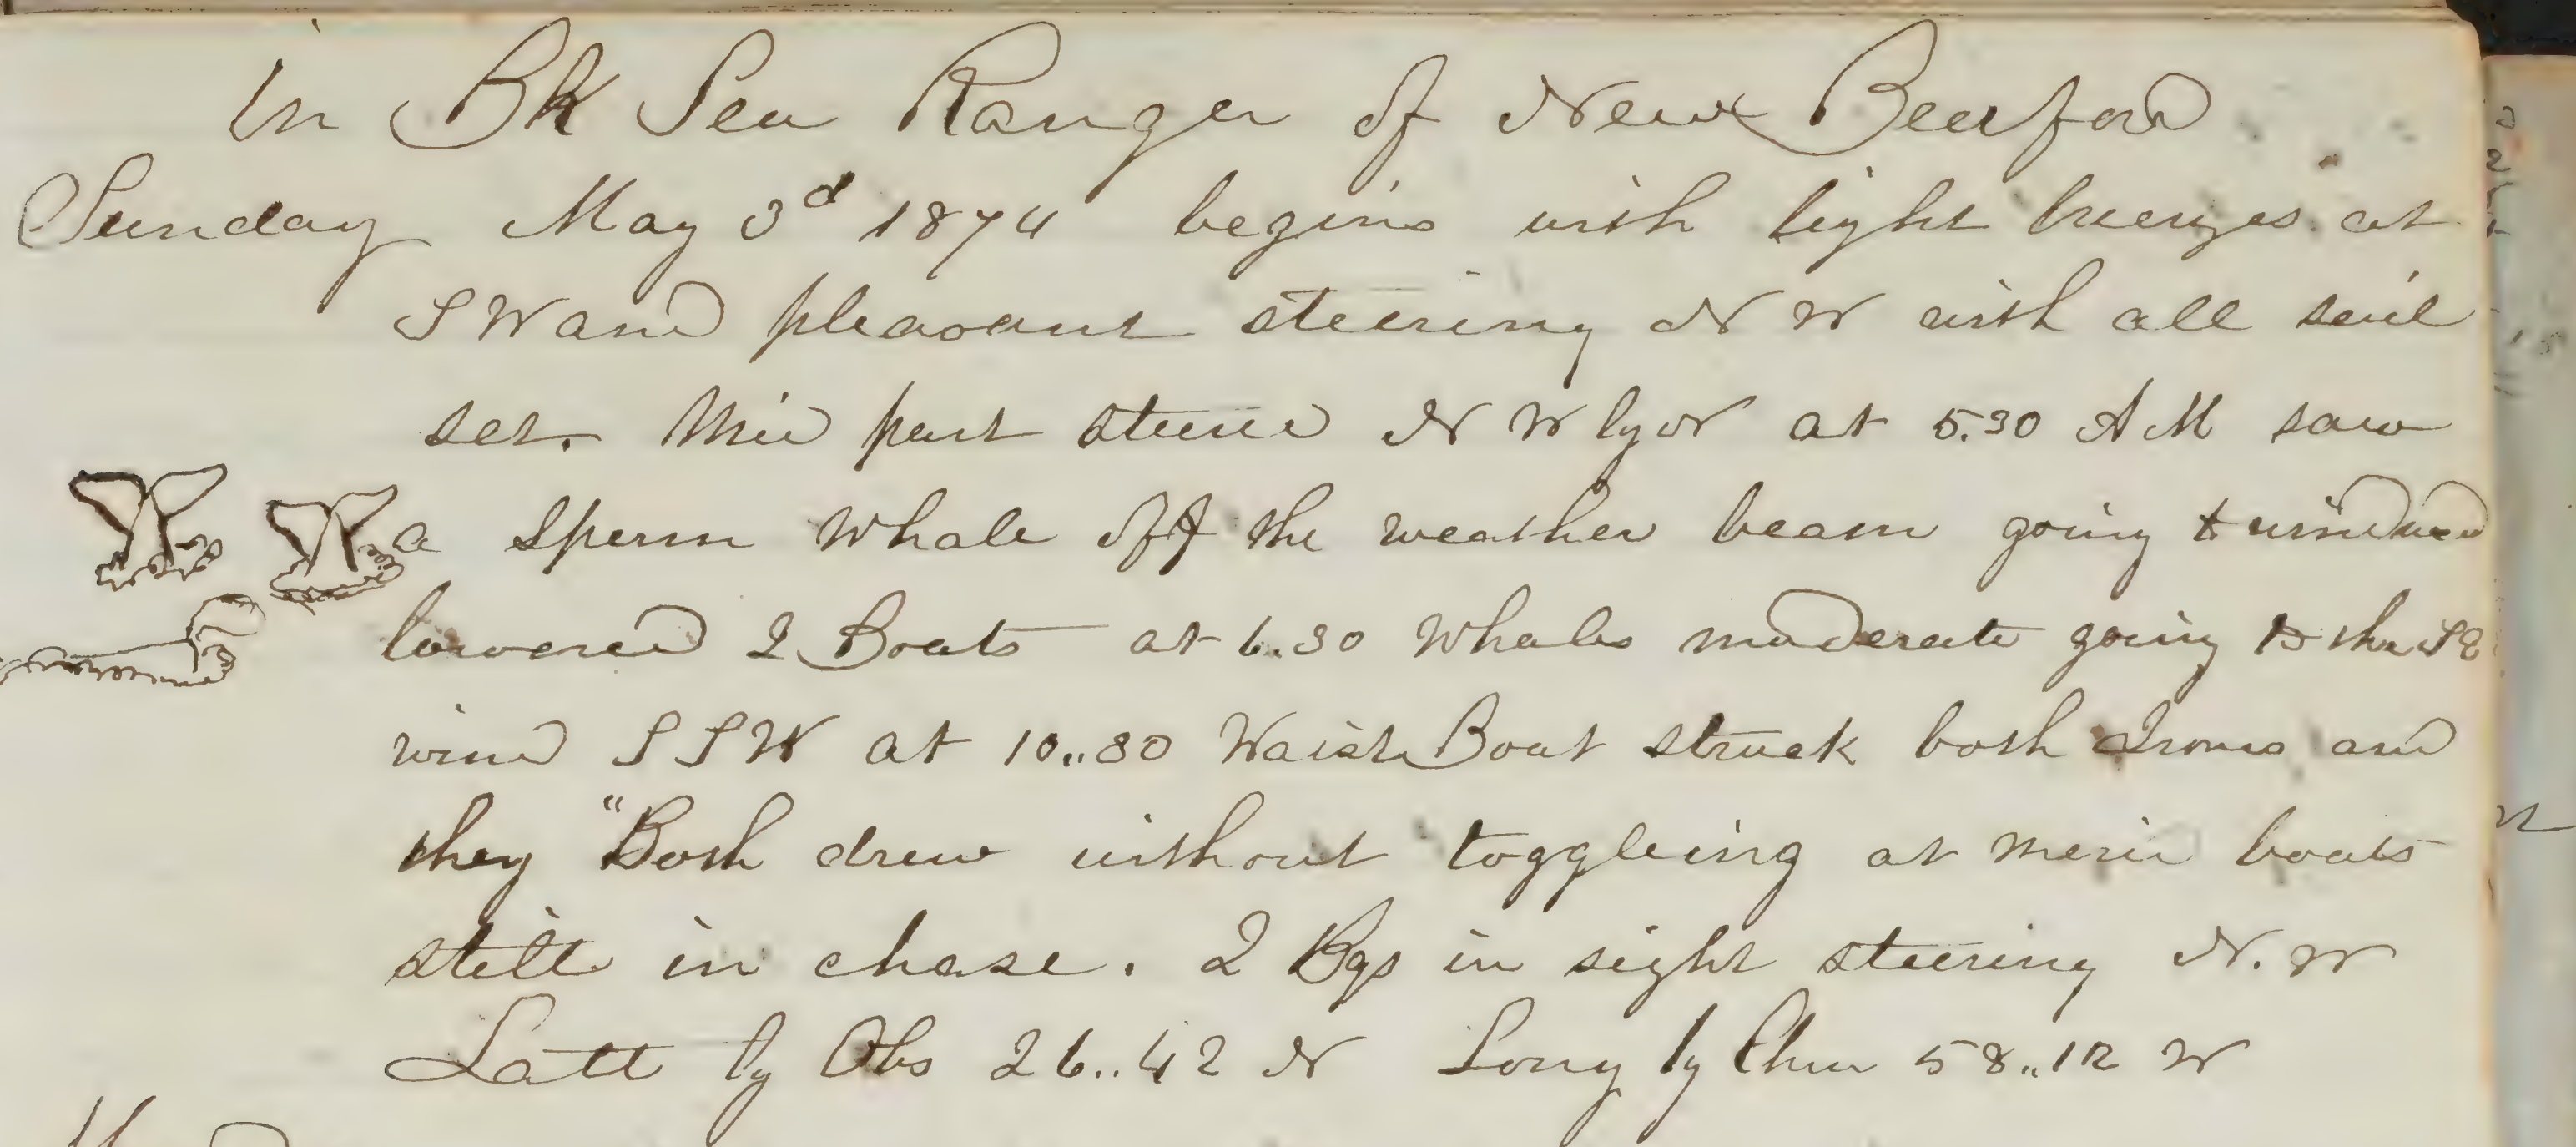 In Bk Sea Ranger of New Bedford
Sunday May 3d 1874 begins with light breezes at
S W and pleasant steering N W with all sail
set. Mid part steered N W by N at 5.30 A M saw
a Sperm Whale off the weather beam going to windward
lowered 2 Boats at 6.30 Whales moderate going to the SE
wind S S W at 10..30 Waist Boat struck both Irons and
they "Both drew without toggleing at merid boats
still in chase. 2 Bgs in sight steering N. W
Latt by Obs 26..42 N Long by Chro 58..12 W